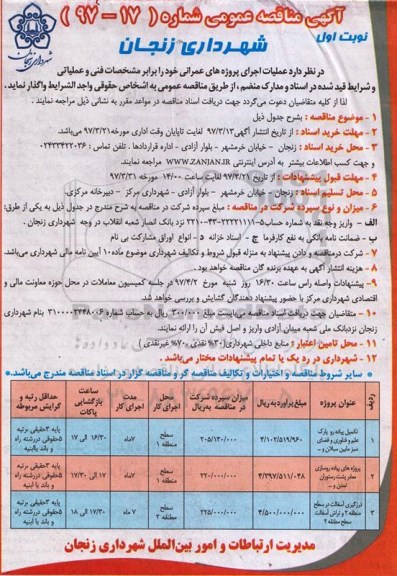 آگهی مناقصه عمومی شماره ( ۱۷ - ۹۷ )
نوبت اول
شهرداری زنجان
در نظر دارد عملیات اجرای پروژه های عمرانی خود را برابر مشخصات فنی و عملیاتی
و شرایط قید شده در اسناد و مدارک منضم ، از طریق مناقصه عمومی به اشخاص حقوقی واجد الشرایط واگذار نماید .
لذا از کلیه متقاضیان دعوت می‌گردد جهت دریافت اسناد مناقصه در مواعد مقرر به نشانی ذیل مراجعه نمایند .
۱ - موضوع مناقصه : بشرح جدول ذیل
۲ - مهلت خرید اسناد : از تاریخ انتشار آگهی ۹۷/۳/۱۳ لغایت تاپایان وقت اداری مورخه ۹۷/۳/۲۱ می‌باشد.
۳ - محل خرید اسناد : زنجان - خیابان خرمشهر - بلوار آزادی - اداره قراردادها . تلفن تماس : ۰۲۴۳۳۴۲۲۰۳۶
و جهت کسب اطلاعات بیشتر به آدرس اینترنتی WWW.ZANJAN.IR مراجعه نمایند.
۴ - مهلت قبول پیشنهادات : از تاریخ ۹۷/۳/۲۱ لغایت ساعت ۱۴/۰۰ مورخه ۹۷/۳/۳۱
۵ - محل تسلیم اسناد : زنجان - خیابان خرمشهر - بلوار آزادی - شهرداری مرکز - دبیرخانه مرکزی.
۶ - میزان و نوع سپرده شرکت در مناقصه : مبلغ سپرده شرکت در مناقصه به شرح مندرج در جدول ذیل به یکی از طرق:
الف - واریز وجه نقد به شماره حساب نزد بانک انصار شعبه انقلاب در وجه شهرداری زنجان .
ب - ضمانت نامه بانکی به نفع کارفرما ج - اسناد خزانه د - انواع اوراق مشارکت بی نام
۷ - شرکت در مناقصه و دادن پیشنهاد به منزله قبول شروط و تکالیف شهرداری موضوع ماده ۱۰ آیین نامه مالی شهرداری می‌باشد.
۸ - هزینه انتشار آگهی به عهده برنده گان مناقصه خواهد بود .
۹ - پیشنهادات واصله راس ساعت ۱۶/۳۰ روز شنبه مورخ ۹۷/۴/۲ در جلسه کمیسیون معاملات در محل حوزه معاونت مالی و
اقتصادی شهرداری مرکز با حضور پیشنهاد دهندگان گشایش و بررسی خواهد شد.
۱۰ - متقاضیان جهت دریافت اسناد مناقصه می‌بایست مبلغ ۳۰۰/۰۰۰ ریال به حساب شماره ۳۱۰۰۰۰۳۴۴۸۰۰۶ بنام شهرداری
زنجان نزد بانک ملی شعبه میدان آزادی واریز و اصل فیش آن را ارائه نمایند.
۱۱ - محل تامین اعتبار : منابع داخلی شهرداری (۳۰٪ نقدی ، ۷۰٪ غیرنقدی )
۱۲ - شهرداری در رد یک یا تمام پیشنهادات مختار می‌باشد .
* سایر شروط مناقصه و اختیارات و تکالیف مناقصه گر و مناقصه گزار در اسناد مناقصه مندرج می‌باشد.*
ردیف عنوان پروژه مبلغ برآورد به ریال میزان سپرده شرکت در مناقصه به ریال محل اجرای کار مدت اجرای کار ساعت بازگشایی پاکات حداقل رتبه و گرایش مربوطه
۱ تکمیل پیاده رو پارک علم و فناوری و فضای سبز مابین سبلان و ... ۴/۱۰۲/۵۱۹/۹۶۰ ۲۰۵/۱۳۰/۰۰۰ سطح منطقه ۱ ۷ماه ۱۶/۳۰ الی ۱۷ پایه ۳حقیقی برتبه ۵حقوقی در رشته راه و باند یا ابنیه
۲ پروژه های پیاده روسازی معابر پشت رستوران تمدن و ... ۴/۳۹۷/۵۱۱/۰۳۸ ۲۲۰/۰۰۰/۰۰۰ سطح منطقه ۱ ۷ماه ۱۷ الی ۱۷/۳۰ پایه ۳حقیقی برتبه ۵حقوقی در رشته راه و باند یا ابنیه
۳ درزگیری آسفالت در سطح منطقه ۲ و تراش آسفالت سطح منطقه ۲ ۴/۵۰۰/۰۰۰/۰۰۰ ۲۲۵/۰۰۰/۰۰۰ سطح منطقه ۲ ۷ ماه ۱۷/۳۰ الی ۱۸ پایه ۳حقیقی برتبه ۵حقوقی در رشته راه و باند یا ابنیه
مدیریت ارتباطات و امور بین‌الملل شهرداری زنجان